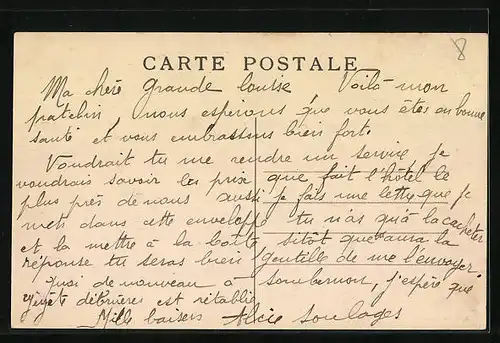 8
CARTE POSTALE
Ma chère grande louise, Voilà mon
patelin, nous espérons, que vous êtes en bonne
santé et vous embrassons bien fort.
Voudrait tu me rendre un service, je
voudrais savoir les prix que fait l'hôtel le
plus près de nous aussi je fais une lettre que je
mets dans cette enveloppe tu n'as qu'à la cacheter
et la mettre à la boîte sitôt que aura la
réponse tu seras bien gentille de me l'envoyer
quoi de nouveau à sombernon, j'espère que
est rétablie
Mille baisers Alcie soulages